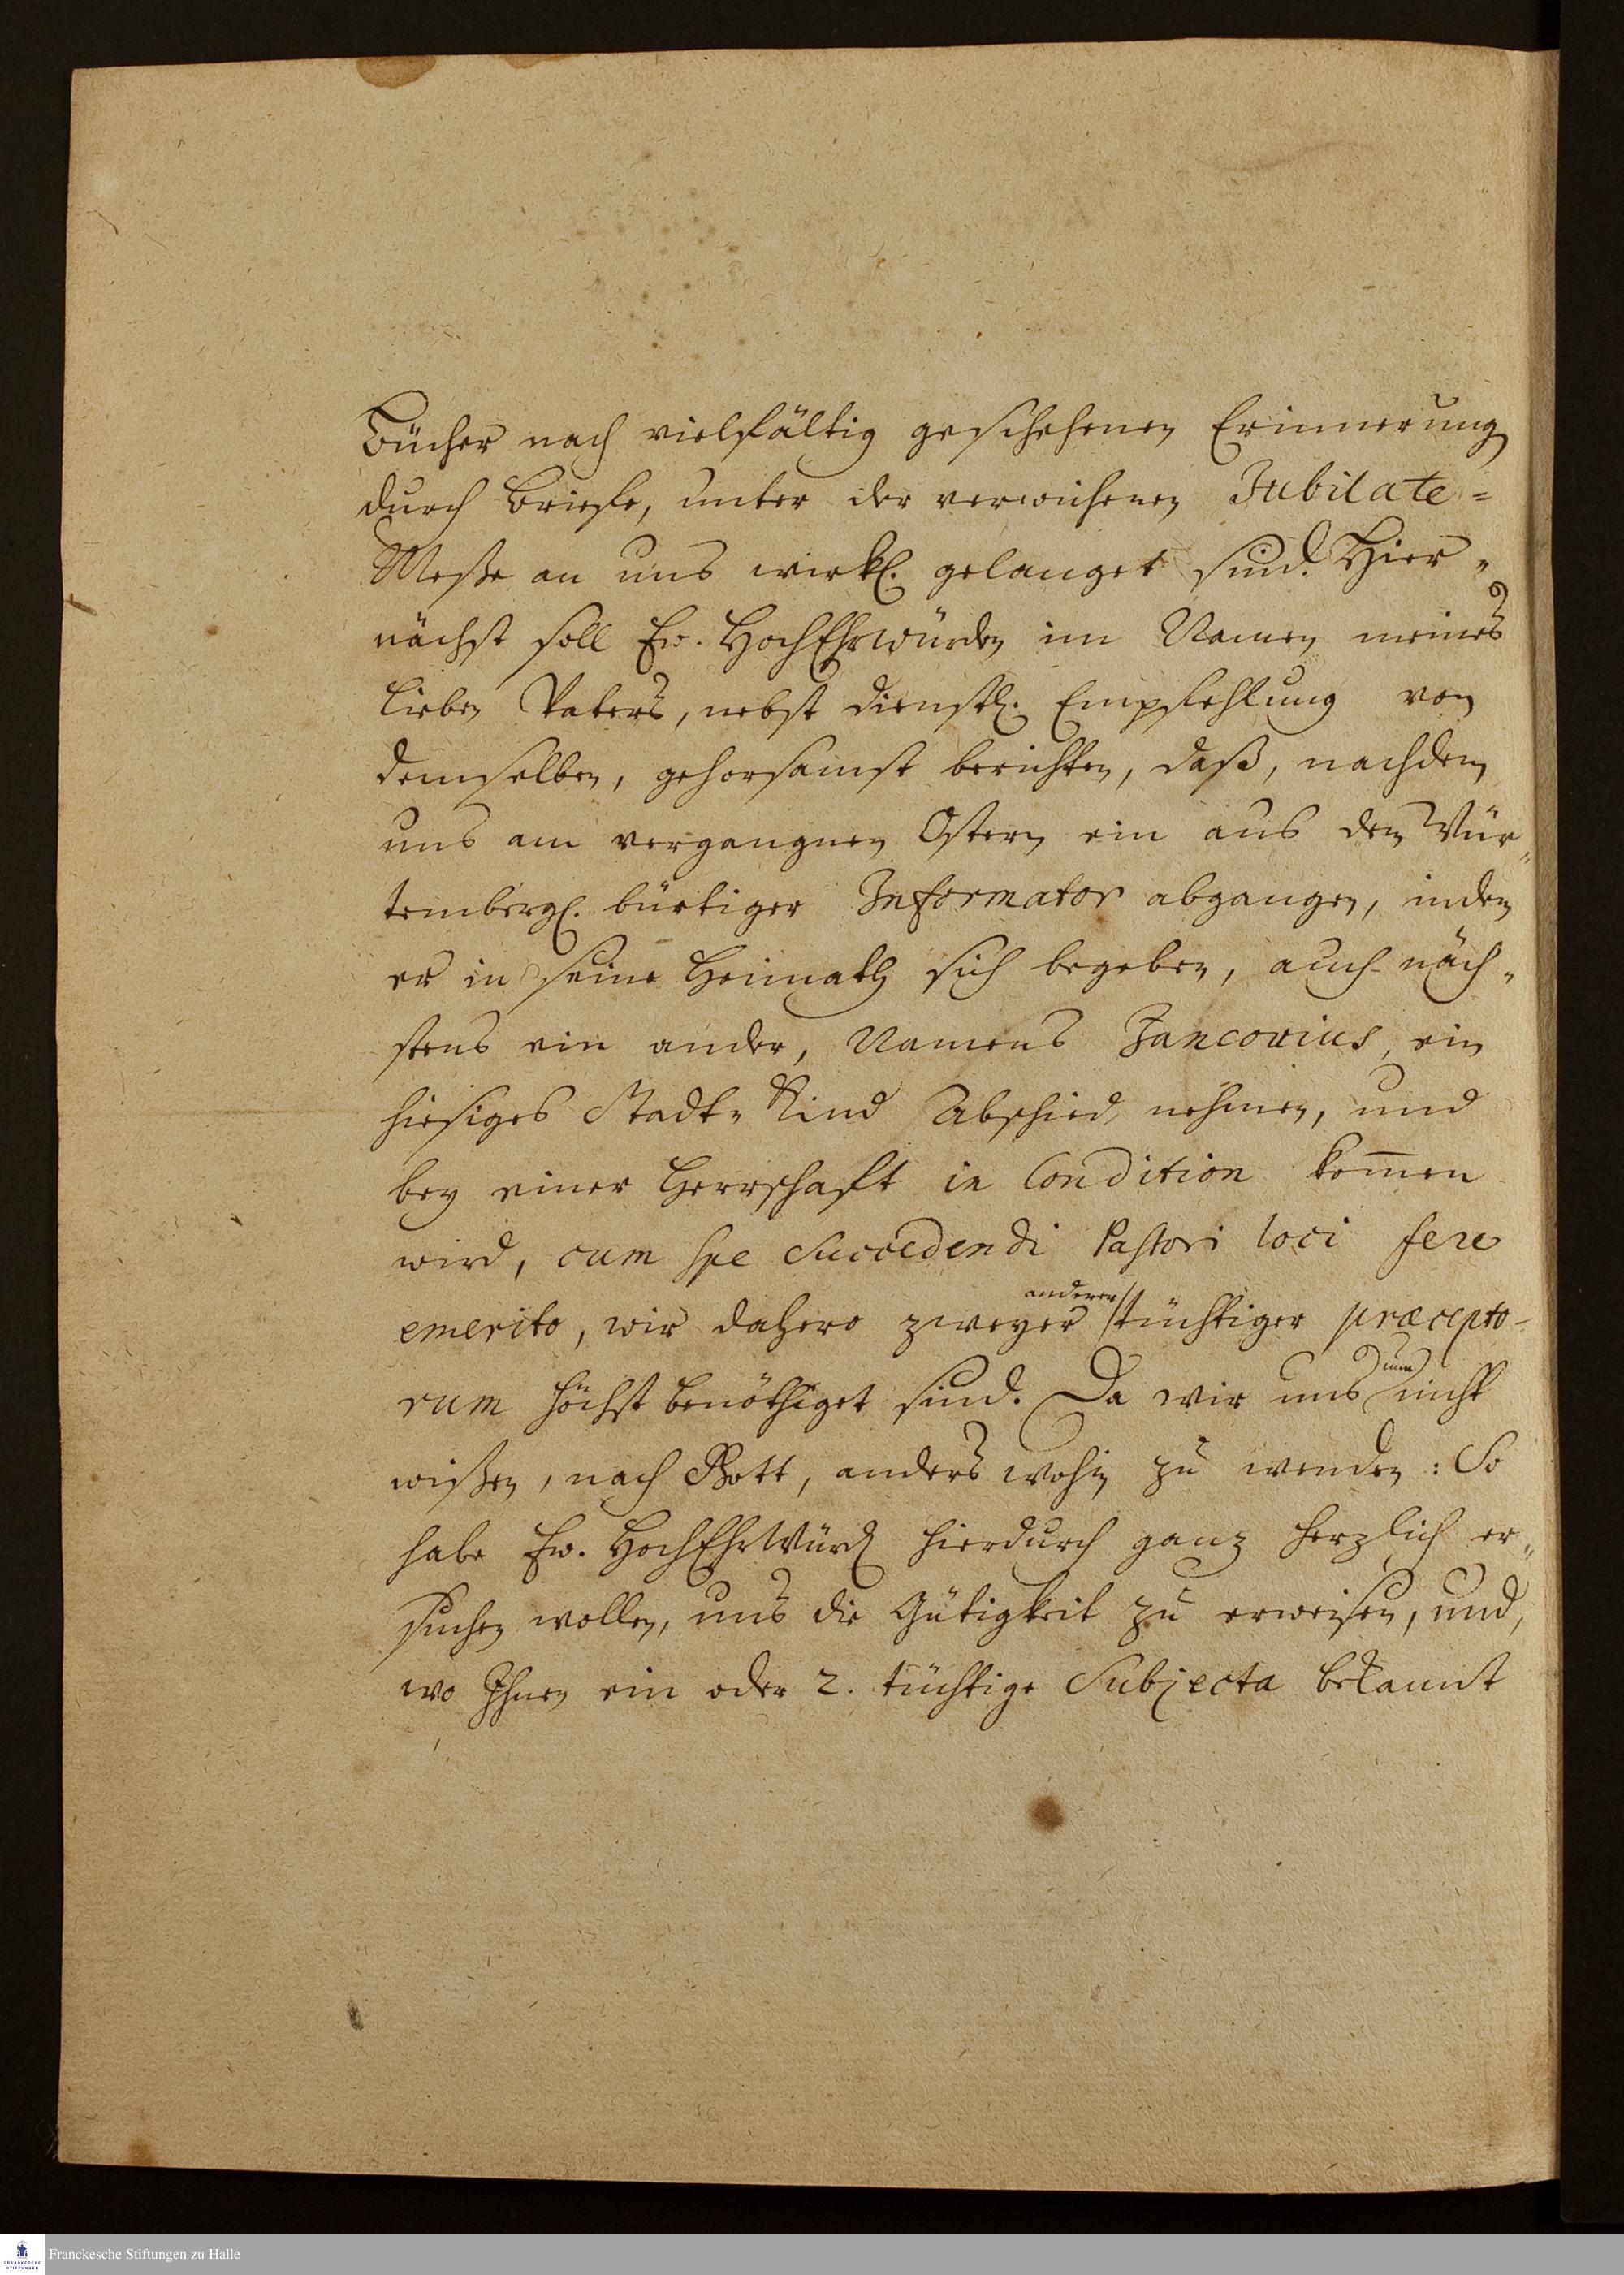 Bücher nach vielfältig geschehenen Erinnerung
durch Briefe, unter der verwichenen Jubilate-
Meße an uns wirkl. gelanget sind. Hier-
nächst soll Ew. HochEhrwürden im Namen meines
lieben Vaters, nebst dienstl. Empfehlung von
demselben, gehorsamst berichten, daß, nachdem
uns am vergangnen Ostern ein aus dem Wür-
tembergl. bürtiger Informator abgangen, indem
er in seine Heimath sich begeben, auch näch-
stens ein ander, Namens Jancovius, ein
hiesiges Stadt-Kind Abschied nehmen, und
bey einer Herrschaft in Condition kom̄en
wird, cum spe succedendi Pastori loci fere
emerito, wir dahero zweyer anderer tüchtiger præcepto-
rum höchst benöthiget sind. Da wir uns nun nicht
wißen, nach Gott, anders wohin zu wenden: So
habe Ew. HochEhrWürd hierdurch ganz herzlich er-
suchen wollen, uns die Gütigkeit zu erweisen, und,
wo Ihnen ein oder 2. tüchtige Subjecta bekannt
Franckesche Stiftungen zu Halle
FRANCKESCHE
STIFTUNGEN